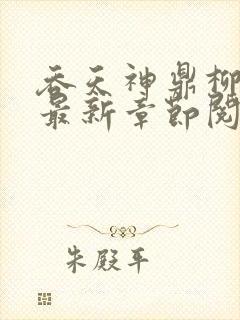 吞天神鼎柳
最新章节阅
朱殿平